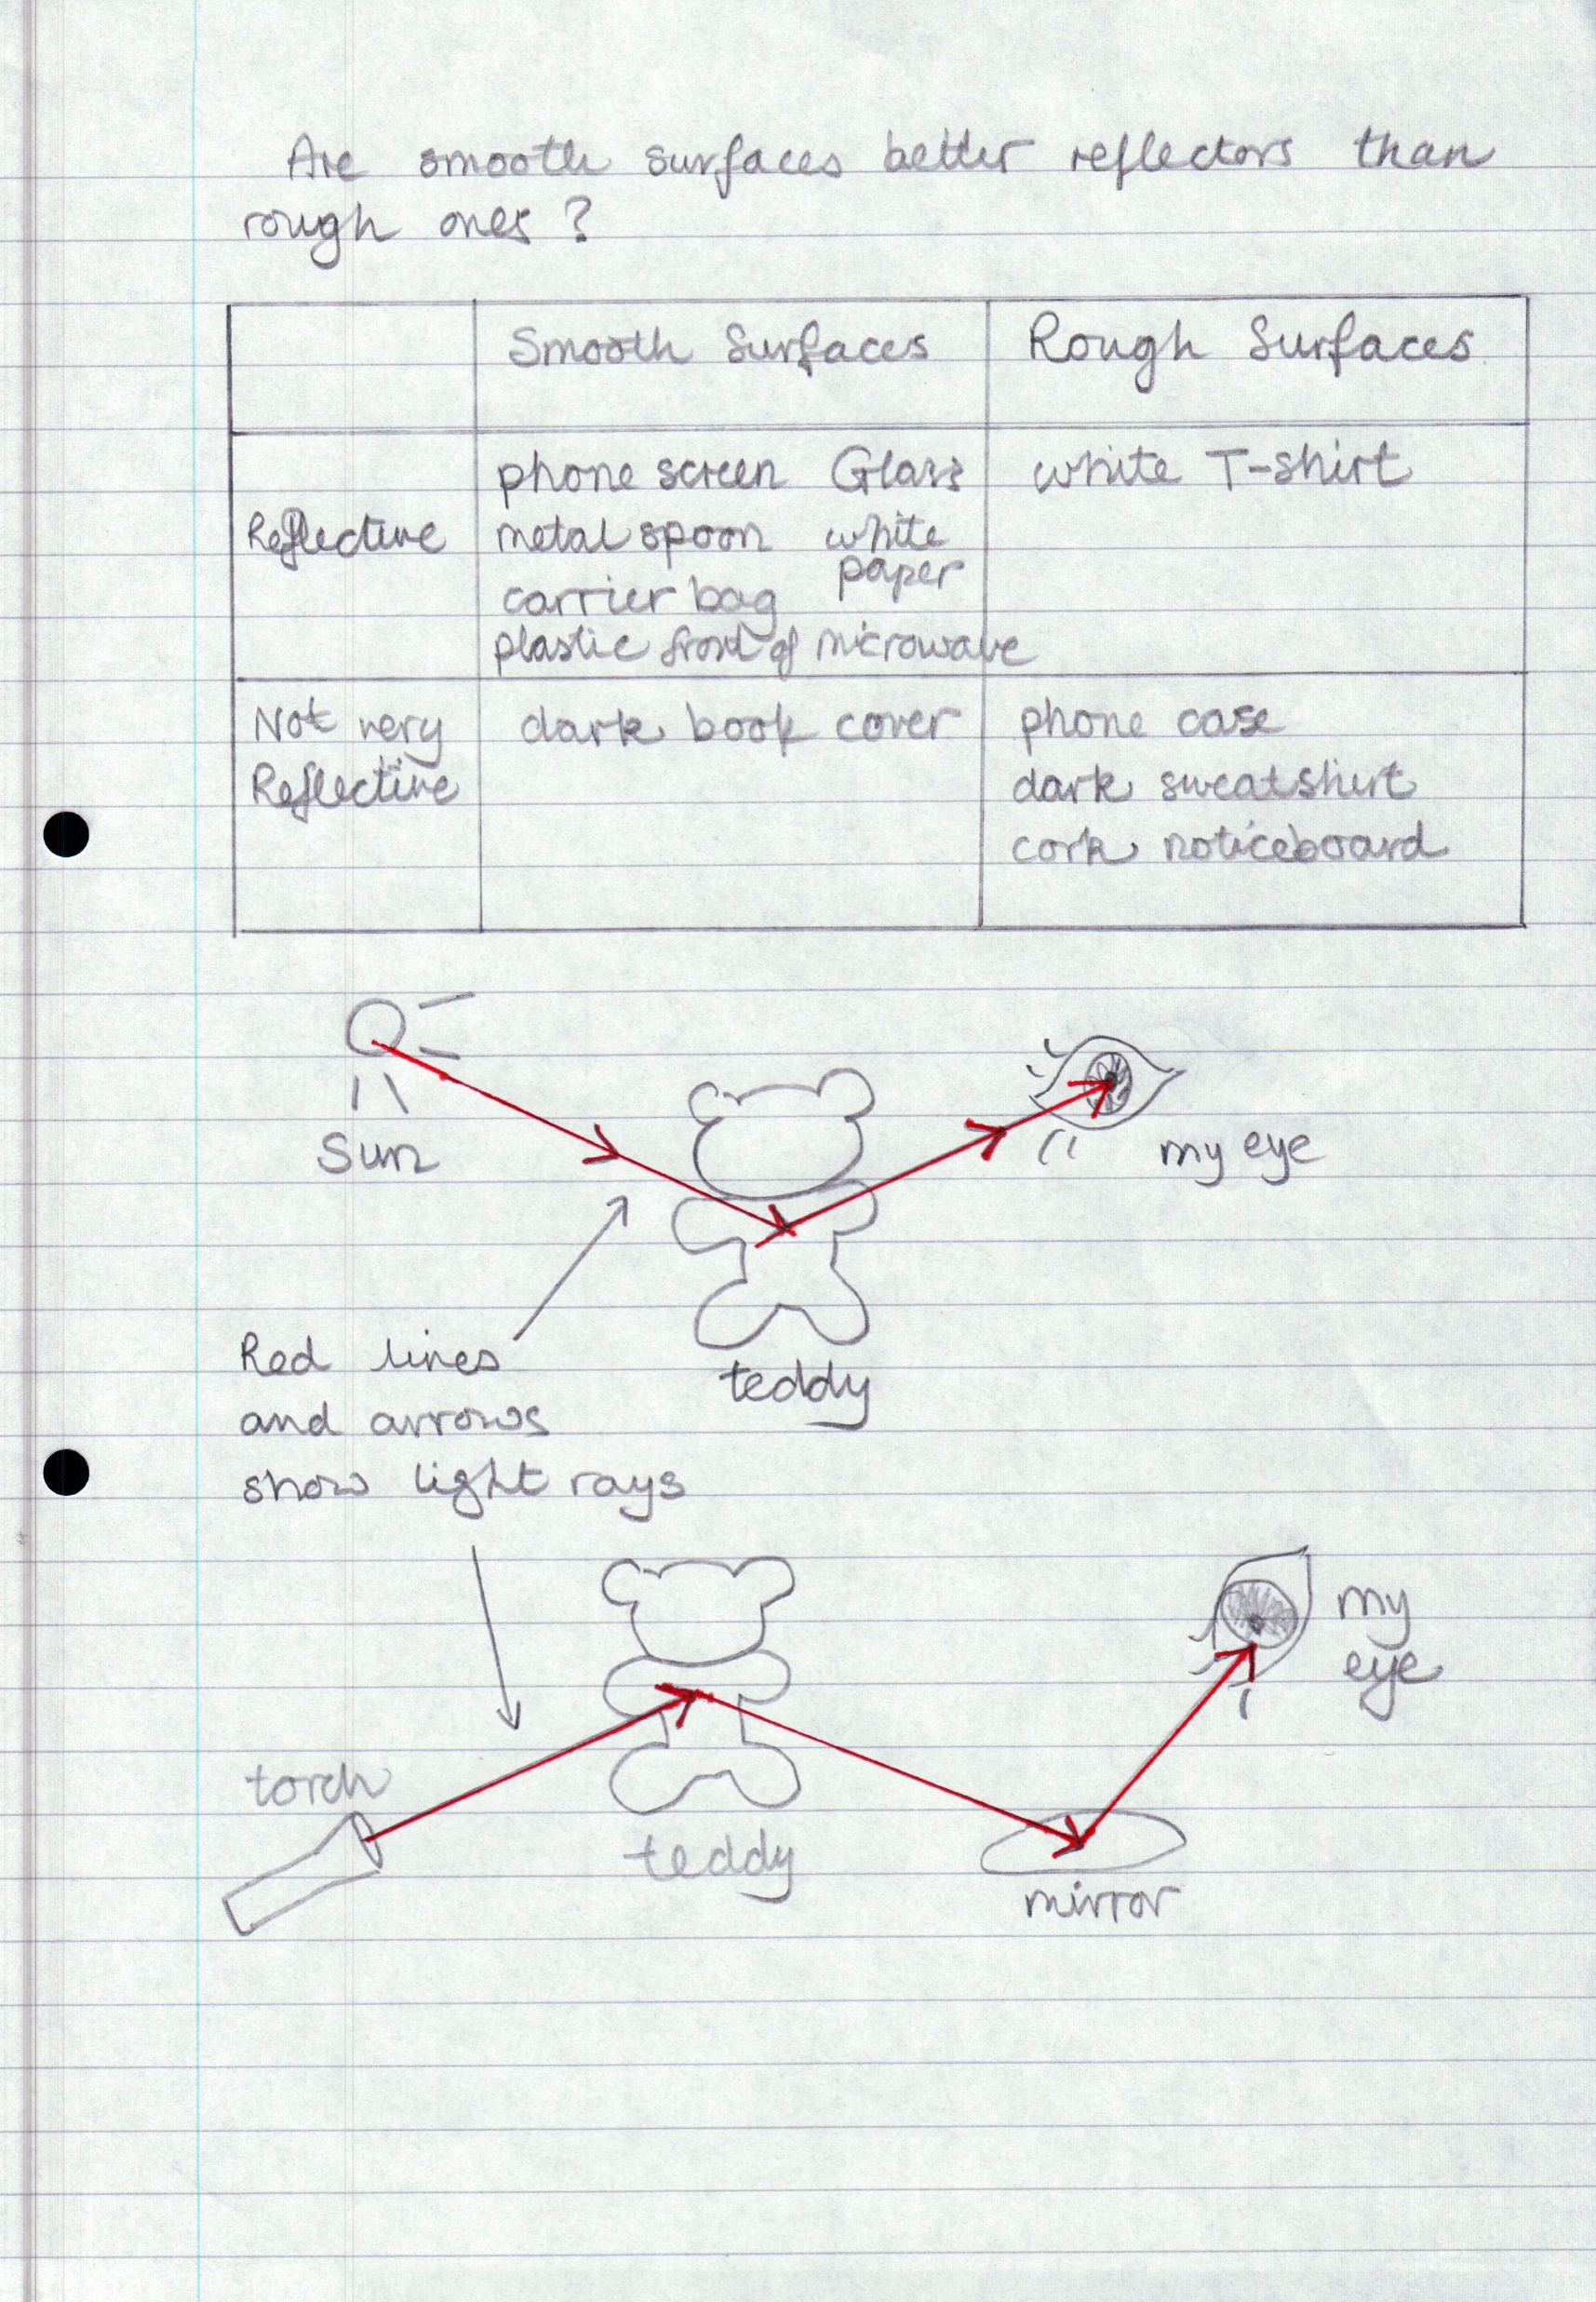 Are smooth surfaces better reflectors than
rough ones?
Smooth Surfaces
Rough Surfaces
Reflective
phone screen Glass
metal spoon white
paper
carrier bag
plastic front of microwave
white T-shirt
Not very
Reflective
dark book cover
phone case
dark sweatshirt
cork noticeboard
Sun
my eye
teddy
Red lines
and arrows
show light rays
my
eye
torch
teddy
mirror